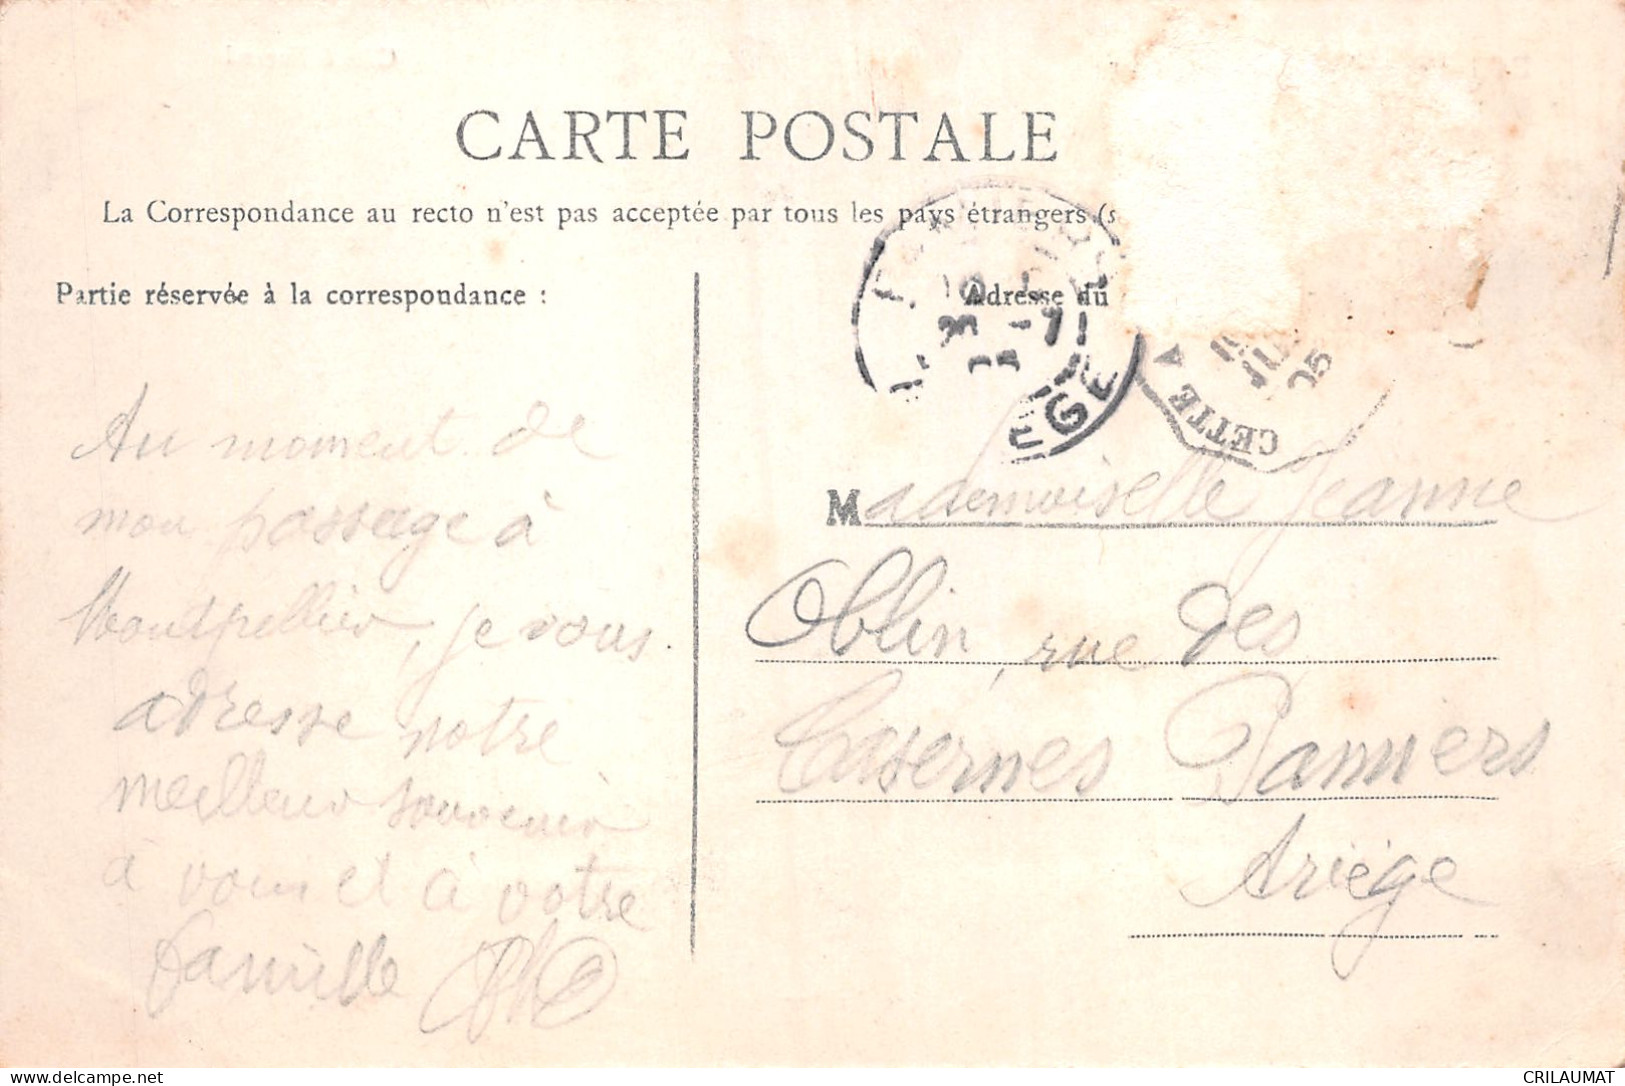 CARTE POSTALE
La Correspondance au recto n'est pas acceptée par tous les pays étrangers (s
Partie réservée à la correspondance :
Adresse du
Au moment de
mon passage à
Montpellier, je vous
adresse notre
meilleur souvenir
à vous et à votre
famille
Mademoiselle Jeanne
Oblin, rue des
Casernes Pamiers
Ariége
CETTE
05
CRILAUMAT